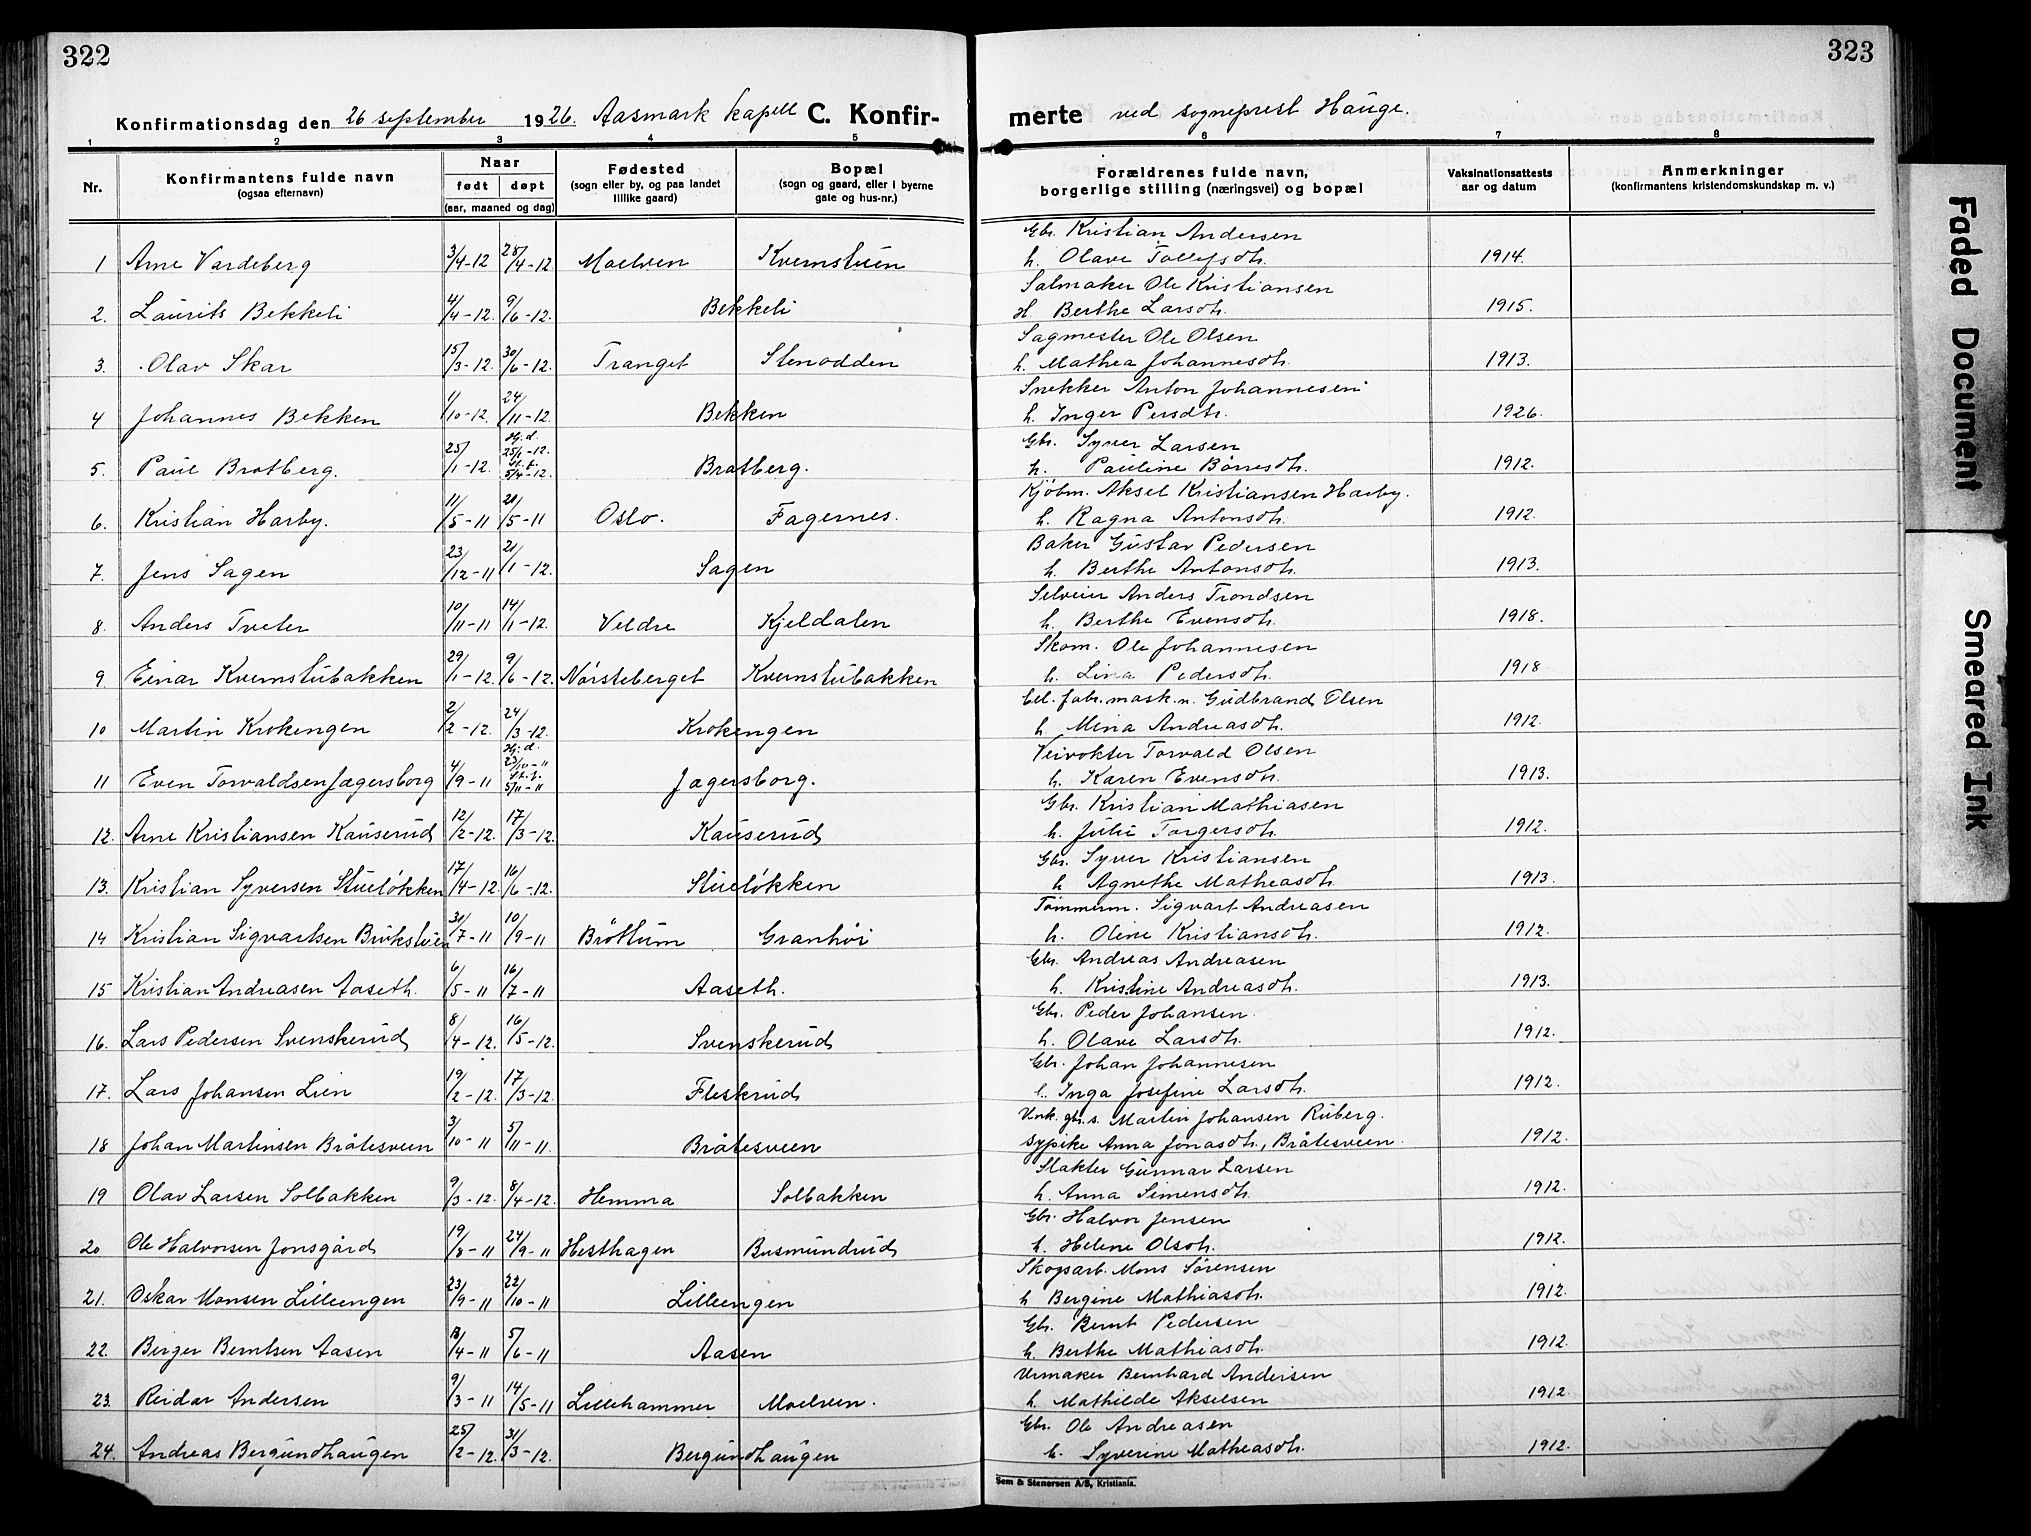 322
323
Konfirmationsdag den 26 september 1926. Aasmark kapell C. Konfir-
merte ved sogneprest Hauge.
1 2 3 4 5 6 7 8
Nr. Konfirmantens fulde navn (ogsaa efternavn) Naar født døpt (aar, maaned og dag) Fødested (sogn eller by, og paa landet tillike gaard) Bopæl (sogn og gaard, eller i byerne gate og hus-nr.) Forældrenes fulde navn, borgerlige stilling (næringsvei) og bopæl Vaksinationsattests aar og datum Anmerkninger (konfirmantens kristendomskundskap m. v.)
Gbr. Kristian Andersen
1 Arne Vardeberg 3/4-12 28/4-12 Moelven Kvernstuen h. Olave Tollefsdtr. 1914.
Salmaker Ole Kristiansen
2. Laurits Bekkeli 4/4-12. 9/6-12. Bekkeli H Berthe Larsdtr. 1915.
Sagmester Ole Olsen
3. Olav Skar 15/3-12. 30/6-12. Tranget Stenodden h. Mathea Johannesdtr. 1913.
Snekker Anton Johannesen
4 Johannes Bekken 11/10-12. 24/11-12. Bekken h. Inger Persdtr. 1926.
Gbr. Syver Larsen
5. Paul Bratberg. 25/1-12. Hj. d. 25/1-12. st. f. 5/4-12. Bratberg. h. Pauline Børresdtr. 1912.
Kjøbm. Aksel Kristiansen Harby.
6. Kristian Harby. 11/5-11 21/5-11 Oslo. Fagernes. h. Ragna Antonsdtr. 1912.
Baker Gustav Pedersen
7. Jens Sagen 23/12-11 21/1-12. Sagen h. Berthe Antonsdtr. 1913.
Selveier Anders Trondsen
8. Anders Tveter 10/11-11 14/1-12. Veldre Kjeldalen h. Berthe Evensdtr. 1918.
Skom. Ole Johannesen
9. Einar Kvernstubakken 29/1-12. 9/6-12. Nørsteberget Kvernstubakken h. Lina Pedersdtr. 1918
Cel. fabr. mask. n. Gudbrand Olsen
10 Martin Krokengen 2/2-12. 24/3-12. Krokengen h. Mina Andreasdtr. 1912.
Veivokter Torvald Olsen
11 Even Torvaldsen Jægersborg 4/9-11 Hj. d. 23/10-11 st. f. 5/11-11 Jægersborg. h. Karen Evensdtr. 1913.
Gbr. Kristian Mathiasen
12. Arne Kristiansen Kauserud 12/2-12. 17/3-12. Kauserud h. Julie Torgersdtr. 1912.
Gbr. Syver Kristiansen
13. Kristian Syversen Stueløkken 17/4-12. 16/6-12. Stueløkken h Agnethe Matheasdtr. 1913.
Tømmerm. Sigvart Andreasen
14 Kristian Sigvartsen Brukstuen 31/7-11 10/9-11 Brøttum Granhøi h. Oline Kristiansdtr. 1912.
Gbr. Andreas Andreasen
15 Kristian Andreasen Aaseth. 6/5-11 16/7-11 Aaseth. h. Kristine Andreasdtr. 1913.
Gbr. Peder Johansen
16. Lars Pedersen Svenskerud 8/4-12. 16/5-12. Svenskerud h. Olave Larsdtr. 1912.
Gbr. Johan Johannesen
17. Lars Johansen Lien 19/2-12. 17/3-12. Fleskrud h. Inga Josefine Larsdtr. 1912.
Unk. gbr.s. Martin Johansen Ruberg.
18 Johan Martinsen Bråtesveen 3/10-11 5/11-11. Bråtesveen sypike Anna Jonasdtr., Bråtesveen. 1912.
Slakter Gunnar Larsen
19 Olav Larsen Solbakken 9/3-12. 8/4-12. Hemma Solbakken h. Anna Simensdtr. 1912.
Gbr. Halvor Jensen
20 Ole Halvorsen Jonsgård 19/8-11 24/9-11 Hesthagen Busmundrud h. Helene Olsdtr. 1912.
Skogsarb. Mons Sørensen
21. Oskar Monsen Lilleengen 23/9-11 22/10-11 Lilleengen h Bergine Mathiasdtr. 1912.
Gbr. Bernt Pedersen
22. Berger Berntsen Aasen 13/4-11 5/6-11 Aasen h. Berthe Mathiasdtr. 1912.
Urmaker Bernhard Andersen
23. Reidar Andersen 9/3-11 14/5-11 Lillehammer Moelven. h. Mathilde Akselsen 1912.
Gbr. Ole Andreasen
24. Andreas Bergundhaugen 25/2-12. 31/3-12. Bergundhaugen h. Syverine Matheasdtr. 1912.
Sem & Stenersen A/S, Kristiania.
Faded Document
Smeared Ink